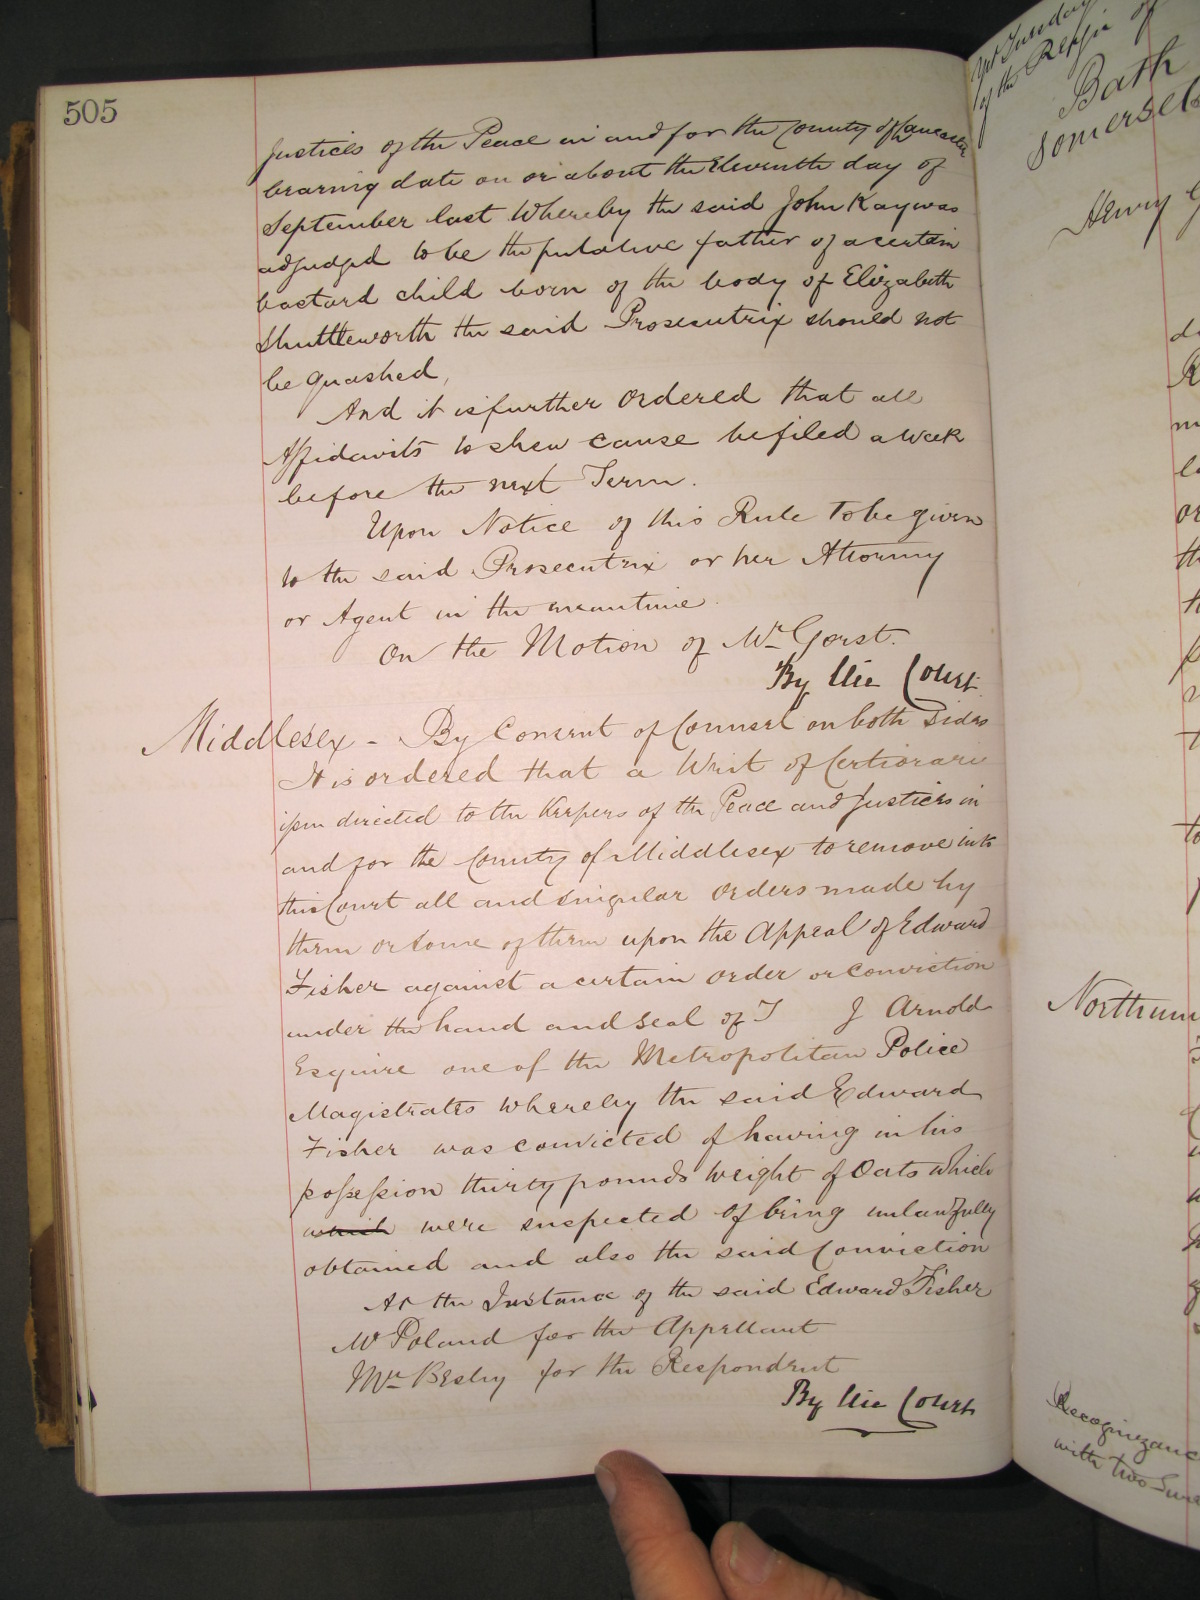 505
Justices of the Peace in and for the County of Lancaster
bearing date on or about the Eleventh day of
September last Whereby the said John Kay was
adjudged to be the putative father of a certain
bastard child born of the body of Elizabeth
Shuttleworth the said Prosecutrix should not
be quashed,
And it is further Ordered that all
Affidavits to shew cause be filed a week
before the next Term.
Upon Notice of this Rule to be given
to the said Prosecutrix or her Attorney
or Agent in the meantime.
On the Motion of Mr Gorst.
By the Court
Middlesex - By Consent of Counsel on both sides
It is ordered that a Writ of Certiorari
issue directed to the Keepers of the Peace and Justices in
and for the County of Middlesex to remove into
this Court all and singular orders made by
them or some of them upon the Appeal of Edward
Fisher against a certain order or conviction
under the hand and seal of T J Arnold
Esquire one of the Metropolitan Police
Magistrates whereby the said Edward
Fisher was convicted of having in his
possession thirty pounds weight of Oats which
which were suspected of being unlawfully
obtained and also the said Conviction
At the Instance of the said Edward Fisher
Mr Poland for the Appellant
Mr Besley for the Respondent
By the Court
Tuesday
of the
Bath
Somerset
Henry G
Northum
Recognizanc
with two Sure